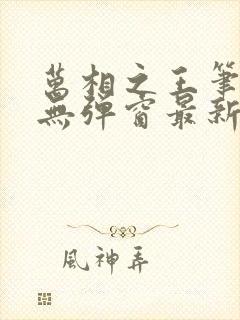 萬相之王筆
無彈窗最新
風神弄